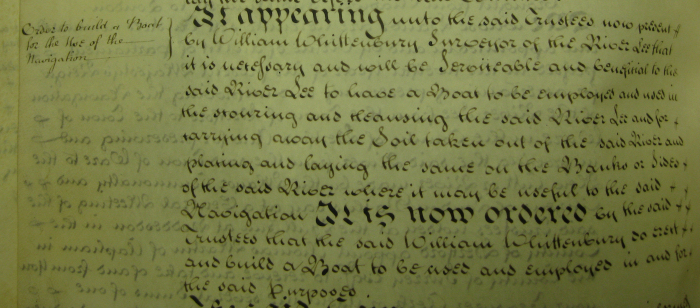 Order to build a Boat
for the Use of the
Navigation
It appearing unto the said Trustees now present
by William Whittenbury Surveyor of the River Lee that
it is necessary and will be Serviceable and beneficial to the
said River Lee to have a Boat to be employed and used in
the scouring and cleansing the said River Lee and for
carrying away the Soil taken out of the said River and
placing and laying the same on the Banks or Sides
of the said River where it may be useful to the said
Navigation It is now ordered by the said
Trustees that the said William Whittenbury do erect
and build a Boat to be used and employed in and for
the said Purposes.